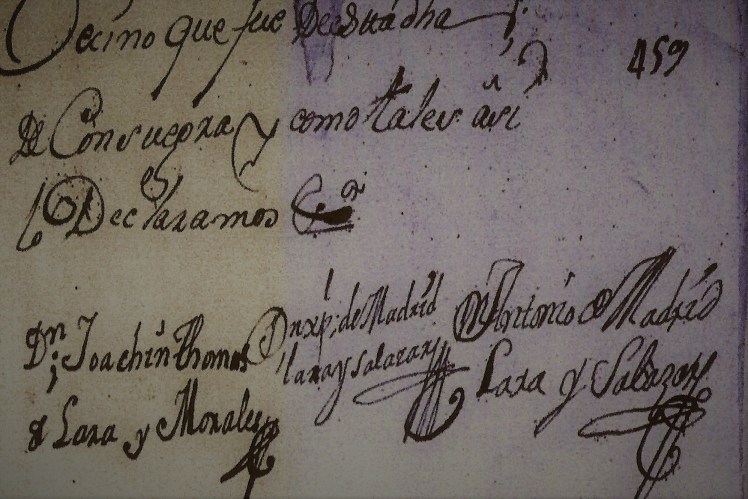 Vecino que fue De dha
459
De Consuegra y como tales asi
lo Declaramos
Dn Joachin Thomas
de Lara y Morales
Dn Xpl de Madrid
lara y salazar
Dn Antonio de Madrid
Lara y Salazar